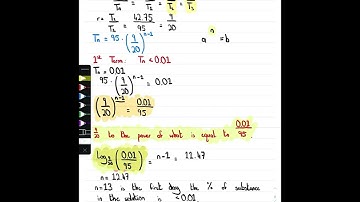 T₁ T₂ T₄ T₅
r = T₂/T₁ = 42.75/95 = 9/20
Tn = 95 · (9/20)^(n-1)
a^n = b
1st Term. Tn < 0.01
Tn = 0.01
95 · (9/20)^(n-1) = 0.01
(9/20)^(n-1) = 0.01/95
9/20 to the power of what is equal to 0.01/95
log_(9/20) (0.01/95) = n-1 = 12.47
n = 12.47
n=13 is the first day the % of substance
in the solution is < 0.01